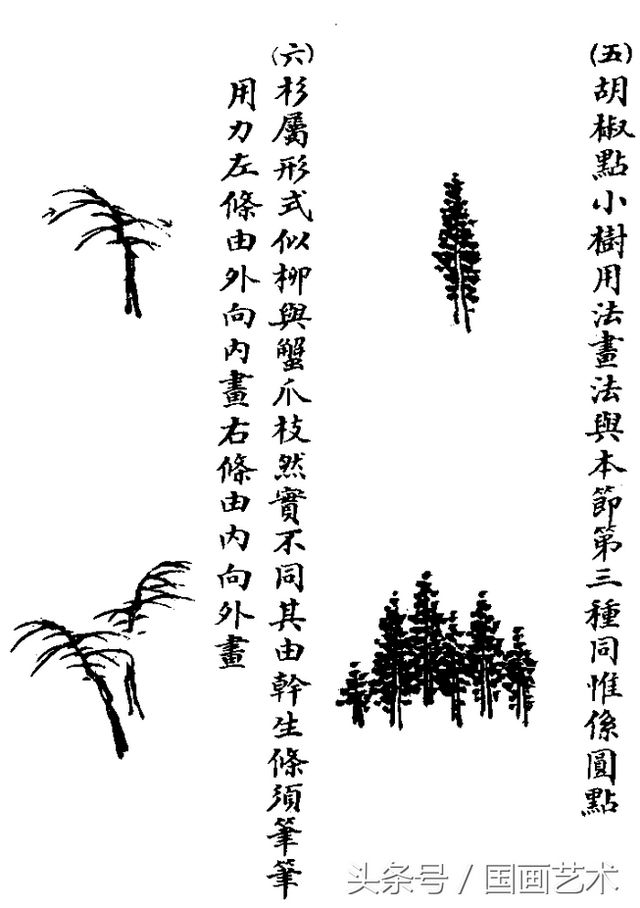 (五)胡椒點小樹用法畫法與本節第三種同惟係圓點
(六)杉屬形式似柳與蟹爪枝然實不同其由幹生條須筆筆
用力左條由外向内畫右條由内向外畫
头条号 / 国画艺术